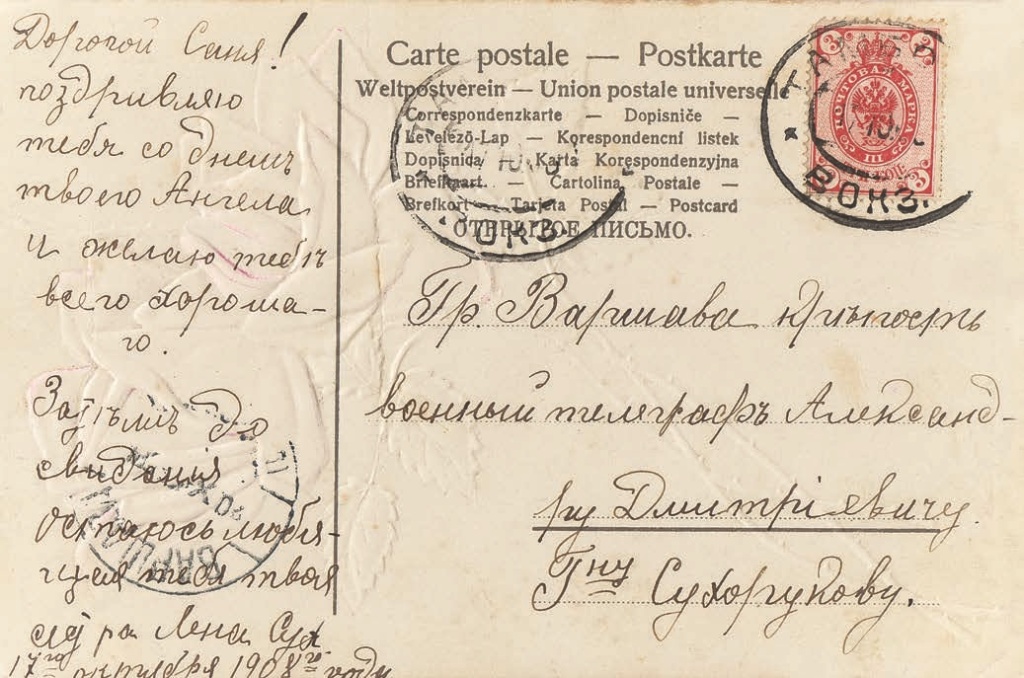 Дорогой Саня!
поздривляю
тебя со днемъ
твоего Ангела
и желаю тебѣ
всего хороша-
го.
Затѣмъ до
свидания
остаюсь любя-
щая тебя твоя
сестра Лена Сух
17го октября 1908го году
Carte postale — Postkarte
Weltpostverein — Union postale universelle
Correspondenzkarte — Dopisniče —
Levelezö-Lap — Korespondencní listek
Dopisnica Karta Korespondenzyjna
Briefkaart. — Cartolina Postale —
Brefkort — Tarjeta Postal — Postcard
ОТКРЫТОЕ ПИСЬМО.
Гр. Варшава крѣпость
военный телеграфъ Александ-
ру Дмитріевичу
Гну Сухорукову.
ПОЧТОВАЯ МАРКА
3
3
3
3
III
ВОКЗ.
ВОКЗ.
ВАРШАВА